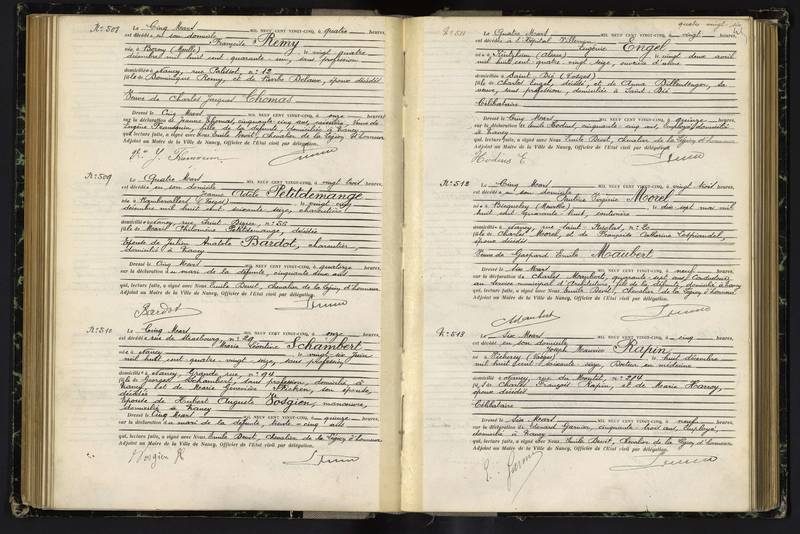 N° 508 Le Cinq Mars MIL NEUF CENT VINGT-CINQ, à quatre heures,
est décédée en son domicile
Françoise Remy
née à (Moselle), le vingt quatre
décembre mil huit cent quarante un, sans profession
domiciliée à Nancy, rue n° 12
fille de Dominique Remy, et de Barbe décédés
Veuve de Charles Jacques Thomas
Dressé le Cinq Mars MIL NEUF CENT VINGT-CINQ, à onze heures,
sur la déclaration de Jeanne Thomas, cinquante cinq ans, veuve de
Eugène fille de la défunte, domiciliée à Nancy
qui, lecture faite, a signé avec Nous, Emile Chevalier de la Légion d'honneur
Adjoint au Maire de la Ville de Nancy, Officier de l'Etat civil par délégation.
N° 509 Le Quatre Mars MIL NEUF CENT VINGT-CINQ, à vingt trois heures,
est décédée en son domicile
Jeanne Adèle Petitdemange
née à (Vosges), le vingt cinq
décembre mil huit cent soixante seize,
domiciliée à Nancy, rue Saint n° 55
fille de Marie Philomène Petitdemange, décédée
Epouse de Julien Anatole Bardot, charretier,
domicilié à Nancy
Dressé le Cinq Mars MIL NEUF CENT VINGT-CINQ, à quatorze heures,
sur la déclaration du mari de la défunte, cinquante deux ans
qui, lecture faite, a signé avec Nous, Emile Chevalier de la Légion d'honneur
Adjoint au Maire de la Ville de Nancy, Officier de l'Etat civil par délégation.
Bardot
N° 510 Le Cinq Mars MIL NEUF CENT VINGT-CINQ, à onze heures,
est décédée rue de Strasbourg, n° 29
Marie Léontine Schambert
née à Nancy, le vingt six Juin
mil huit cent quatre vingt seize, sans profession
domiciliée à Nancy Grande rue, n° 94
fille de Georges Schambert, sans profession, domicilié à
Nancy, et de Marie son épouse,
décédée
Epouse de Hubert Auguste Vosgien, manoeuvre,
domicilié à Nancy
Dressé le Cinq Mars MIL NEUF CENT VINGT-CINQ, à quinze heures,
sur la déclaration du mari de la défunte, trente-cinq ans
qui, lecture faite, a signé avec Nous, Emile Chevalier de la Légion d'honneur
Adjoint au Maire de la Ville de Nancy, Officier de l'Etat civil par délégation.
Vosgien
quatre vingt six
N° 511 Le Quatre Mars MIL NEUF CENT VINGT-CINQ, à vingt heures,
est décédée à l'Hôpital Villemin
Eugénie Engel
née à (Alsace) le vingt deux avril
mil huit cent quatre vingt seize, ouvrière d'usine
domiciliée à Saint Dié (Vosges)
fille de Charles Engel, décédé, et de Anna sa
veuve, sans profession, domiciliée à Saint Dié
Célibataire
Dressé le Cinq Mars MIL NEUF CENT VINGT-CINQ, à quinze heures,
sur la déclaration de Emile Hodins, cinquante cinq ans, employé, domicilié
à Nancy
qui, lecture faite, a signé avec Nous, Emile Chevalier de la Légion d'honneur
Adjoint au Maire de la Ville de Nancy, Officier de l'Etat civil par délégation.
Hodins E
N° 512 Le Cinq Mars MIL NEUF CENT VINGT-CINQ, à vingt trois heures,
est décédée en son domicile
Pauline Virginie Morel
née à Bicqueley (Meurthe), le dix sept mai mil
huit cent quarante huit, couturière
domiciliée à Nancy, rue Saint Nicolas, n° 20
fille de Charles Morel, et de Françoise Catherine
époux décédés
Veuve de Gaspard Emile Maubert
Dressé le Six Mars MIL NEUF CENT VINGT-CINQ, à neuf heures,
sur la déclaration de Charles Maubert, quarante-sept ans, Conducteur
au service municipal d'Architecture, fils de la défunte, domicilié à Nancy
qui, lecture faite, a signé avec Nous, Emile Chevalier de la Légion d'honneur
Adjoint au Maire de la Ville de Nancy, Officier de l'Etat civil par délégation.
Maubert
N° 513 Le Six Mars MIL NEUF CENT VINGT-CINQ, à cinq heures,
est décédé en son domicile
Joseph Maurice Rapin
né à Vicherey (Vosges) le huit décembre
mil huit cent soixante sept, Docteur en médecine
domicilié à Nancy, rue de n° 214
fils de Charles François Rapin, et de Marie
époux décédés
Célibataire
Dressé le Six Mars MIL NEUF CENT VINGT-CINQ, à neuf heures,
sur la déclaration de Edouard Garnier, cinquante trois ans, employé,
domicilié à Nancy
qui, lecture faite, a signé avec Nous, Emile Chevalier de la Légion d'honneur
Adjoint au Maire de la Ville de Nancy, Officier de l'Etat civil par délégation.